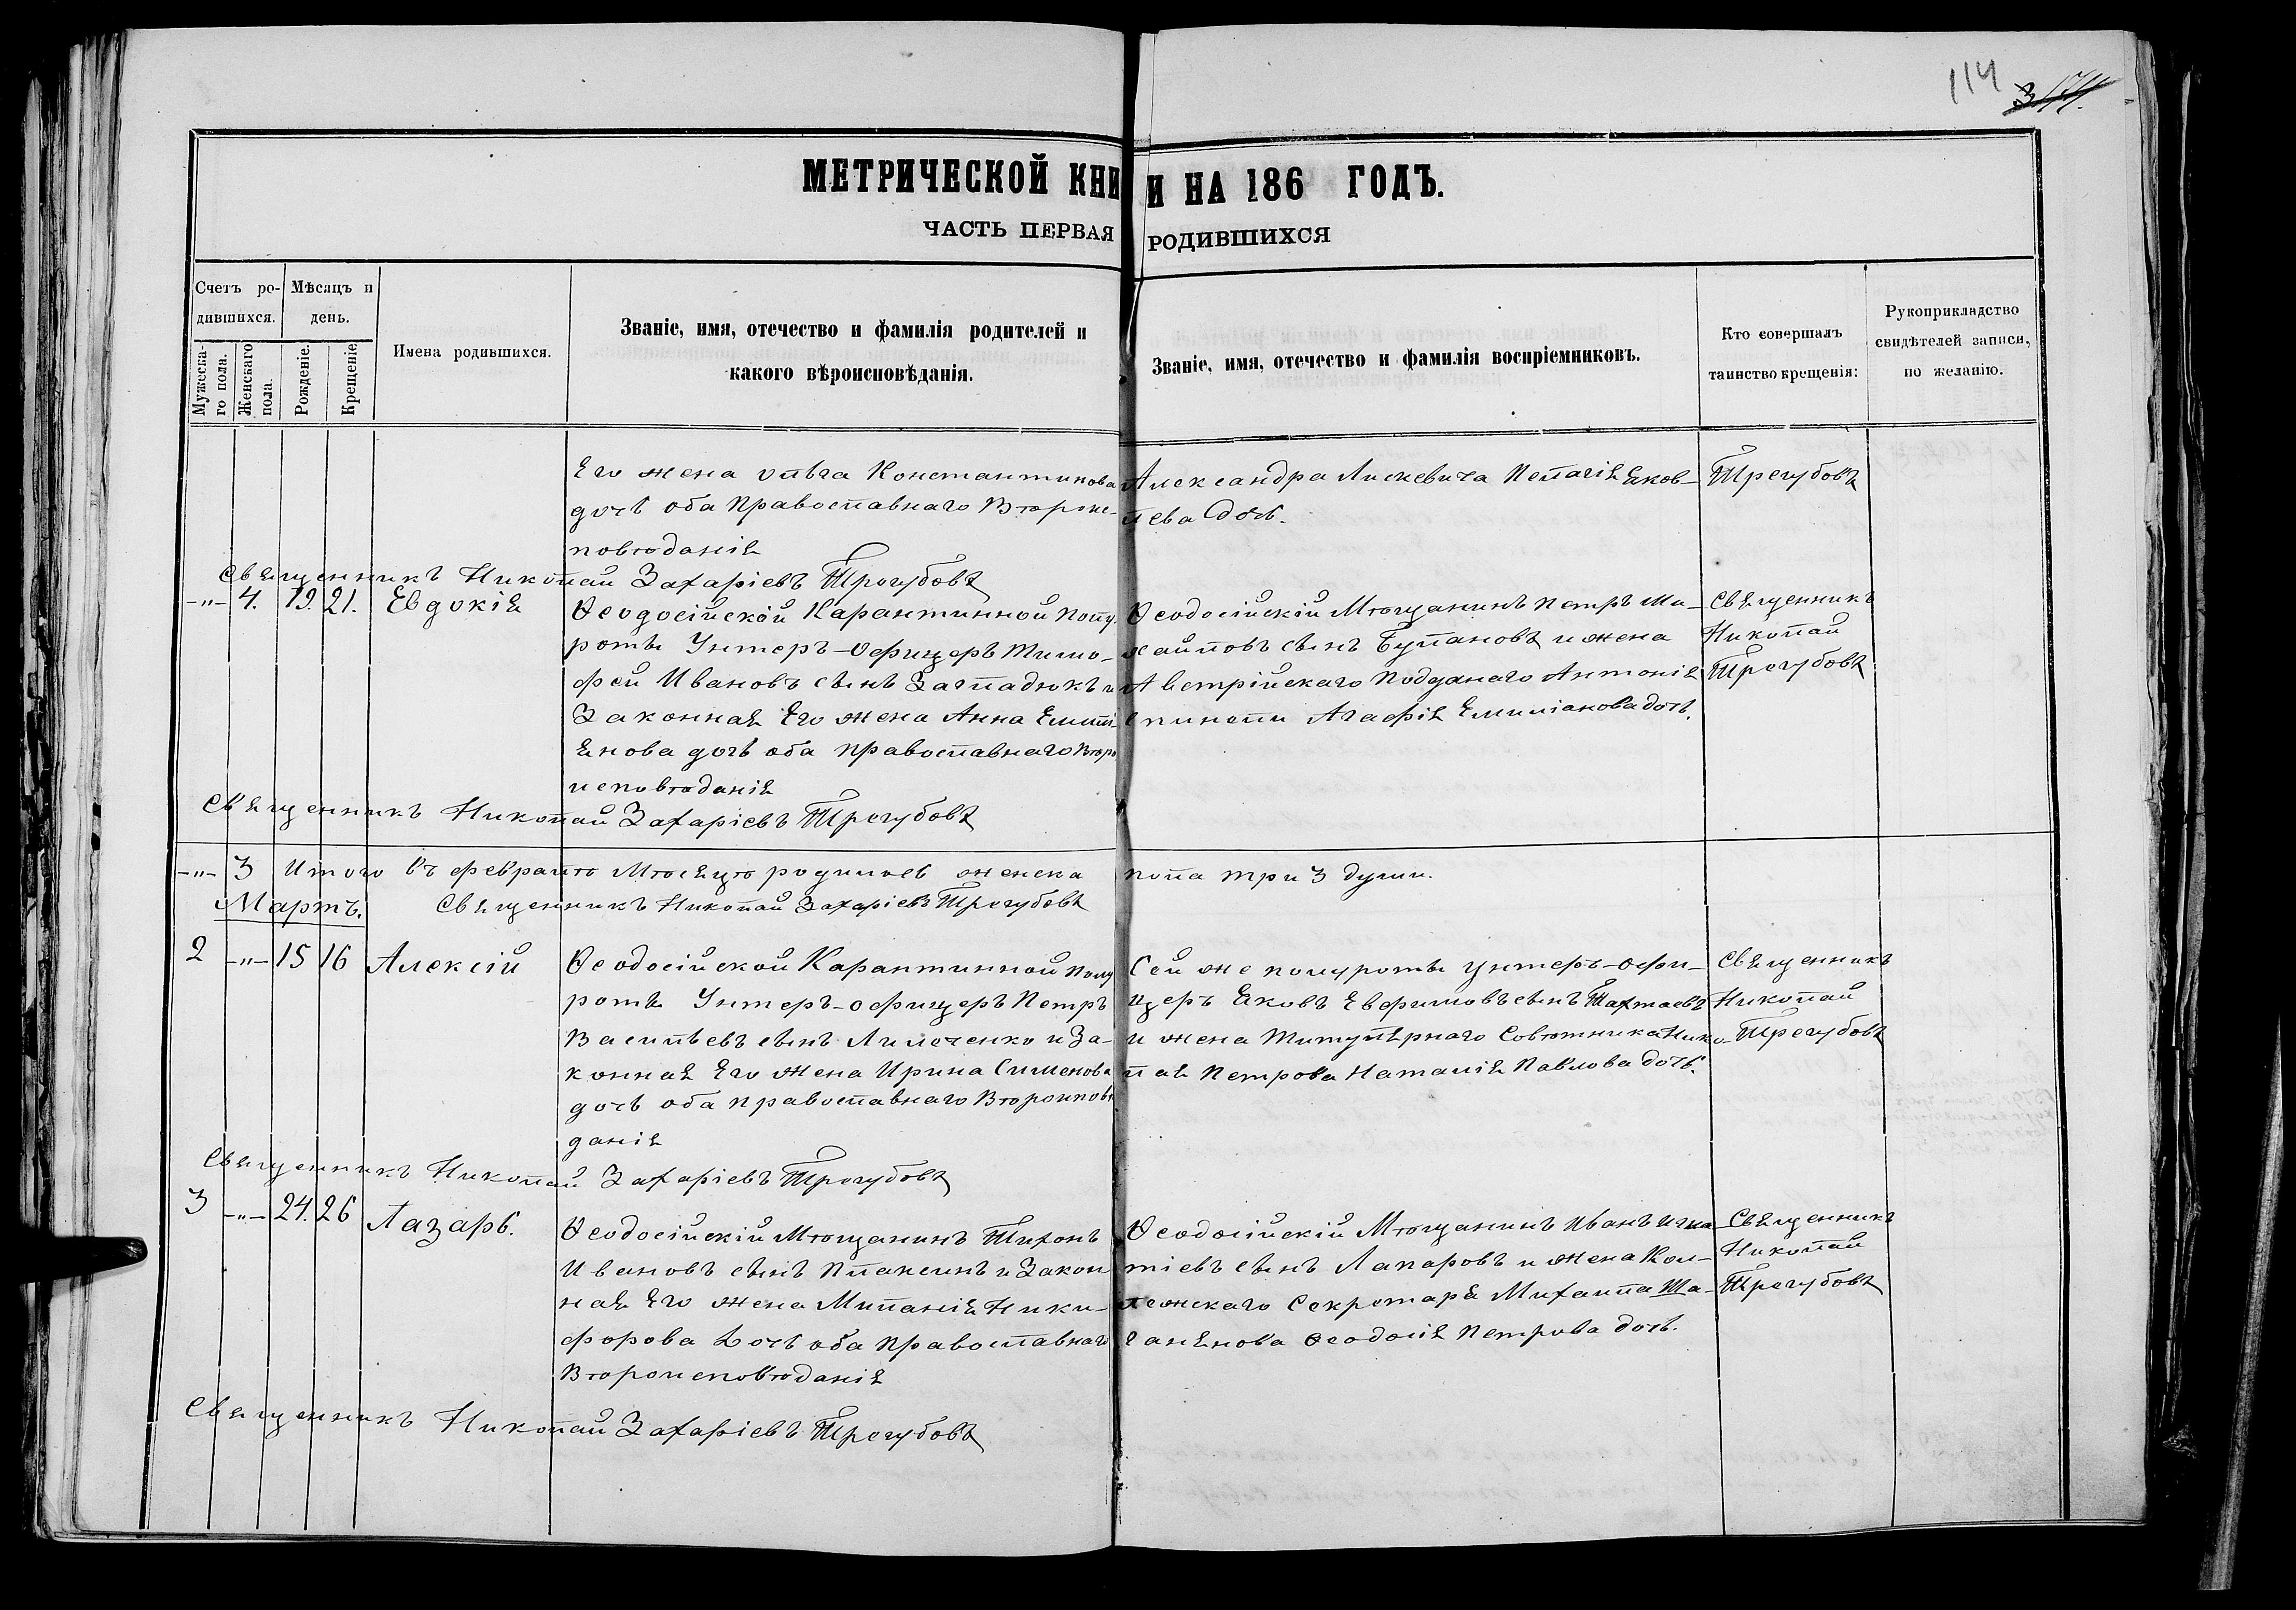 114
МЕТРИЧЕСКОЙ КНИ И НА 186 ГОДЪ.
ЧАСТЬ ПЕРВАЯ РОДИВШИХСЯ
Счетъ ро-
дившихся.
Мужеска-
го пола.
Женскаго
пола.
Мѣсяцъ и
день.
Рожденіе.
Крещеніе.
Имена родившихся.
Званіе, имя, отечество и фамилія родителей и
какого вѣроисповѣданія.
Званіе, имя, отечество и фамилія воспріемниковъ.
Кто совершалъ
таинство крещенія:
Рукоприкладство
свидѣтелей записи,
по желанію.
Его жена Ольга Константинова
дочь оба Православнаго Вѣроис-
повѣданія
Александра Лискевича Пелагія Яков-
лева Дочь.
Трегубовъ
Священникъ Николай Захаріевъ Трегубовъ
-"- 4. 19. 21. Евдокія
Ѳеодосійской Карантинной Полу
роты Унтеръ-Офицеръ Тимо-
фей Ивановъ сынъ Загладюкъ и
Законная Его жена Анна Емилі
янова дочь оба православнаго Вѣро
исповѣданія
Ѳеодосійскій Мѣщанинъ Петръ Ми-
хайловъ сынъ Булановъ и жена
Австрійскаго Подданаго Антонія
Агафія Емиліанова дочь.
Священникъ
Николай
Трегубовъ
Священникъ Николай Захаріевъ Трегубовъ
-"- 3 Итого въ февралѣ Мѣсяцѣ родилось женска пола три 3 души.
Мартъ. Священникъ Николай Захаріевъ Трегубовъ
2 -"- 15 16 Алексій
Ѳеодосійской Карантинной полу
роты Унтеръ-офицеръ Петръ
Васильевъ сынъ Лимоченко и За-
конная Его Жена Ирина Сименова
дочь оба православнаго Вѣроиповѣ
данія
Сей же полуроты унтеръ-офи-
церъ Яковъ Евфимовъ сынъ Тахтаевъ
и жена Титулярнаго Совѣтника Нико-
лая Петрова Наталія Павлова дочь.
Священникъ
Николай
Трегубовъ
Священникъ Николай Захаріевъ Трегубовъ
3 -"- 24. 26 Лазарь.
Ѳеодосійскій Мѣщанинъ Тихонъ
Ивановъ сынъ Плаксинъ и Закон
ная Его жена Миланія Ники-
форова Дочь оба Православнаго
Вѣроисповѣданія
Ѳеодосійскій Мѣщанинъ Иванъ Игна-
тіевъ сынъ Лапаровъ и жена Кол-
лежскаго Секретаря Михаила Ша-
ганянова Ѳеодосія Петрова дочь.
Священникъ
Николай
Трегубовъ
Священникъ Николай Захаріевъ Трегубовъ